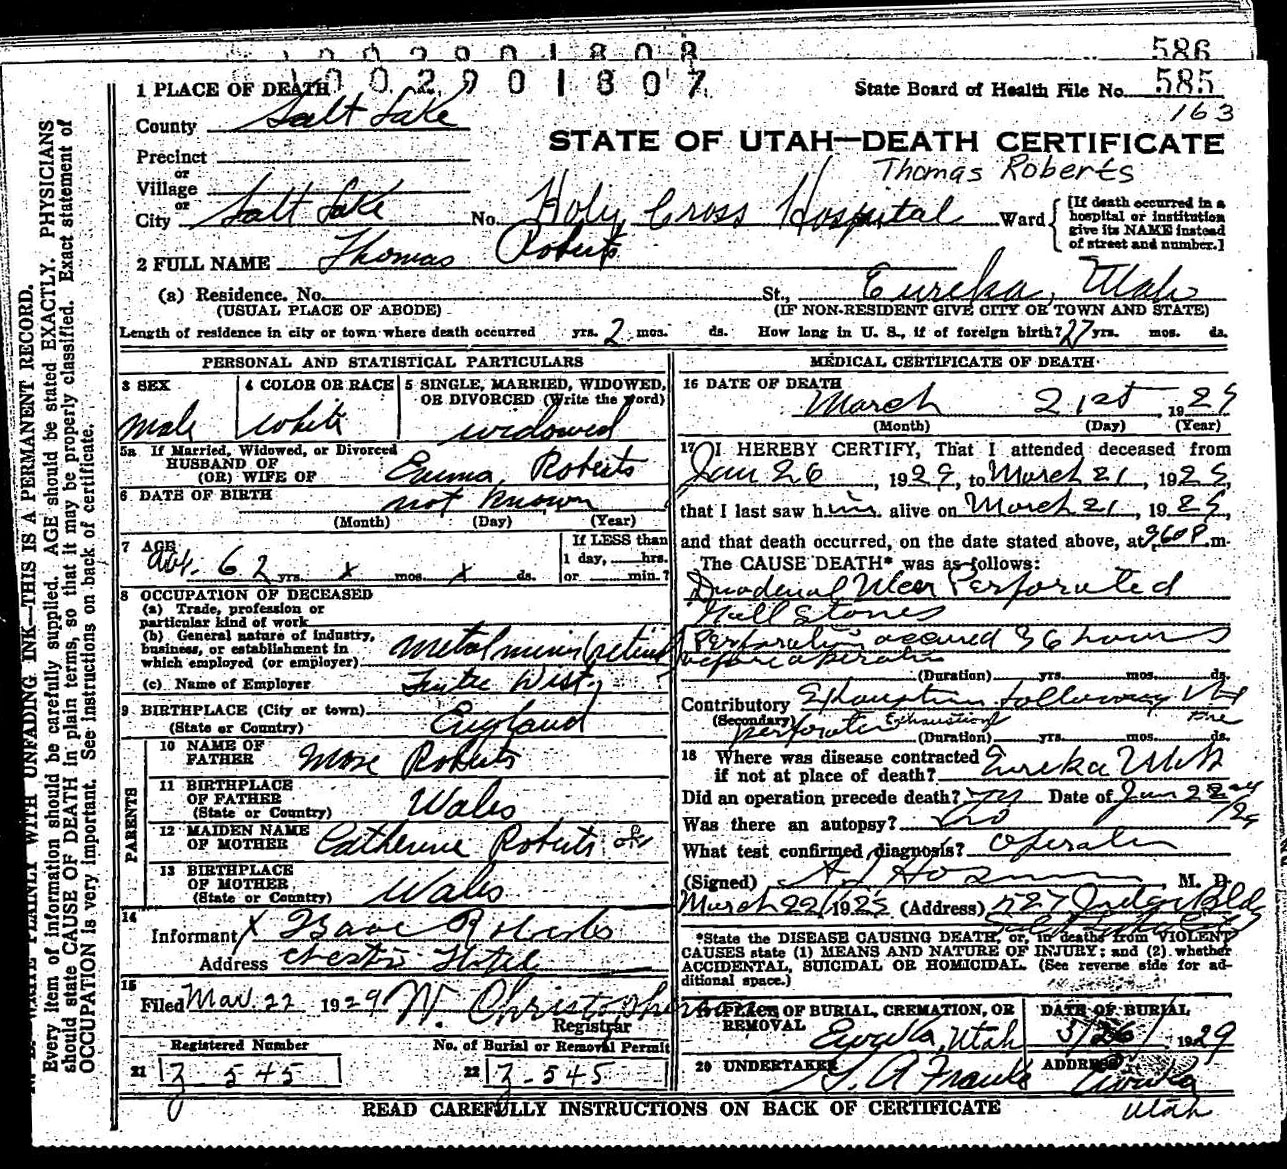 586
1002901807
585
1 PLACE OF DEATH
State Board of Health File No. 585
163
County Salt Lake
STATE OF UTAH—DEATH CERTIFICATE
Precinct
Thomas Roberts
or
Village
or
City Salt Lake No. Holy Cross Hospital Ward
[If death occurred in a
hospital or institution
give its NAME instead
of street and number.]
2 FULL NAME Thomas Roberts
(a) Residence. No. St., Eureka, Utah
(USUAL PLACE OF ABODE) (IF NON-RESIDENT GIVE CITY OR TOWN AND STATE)
Length of residence in city or town where death occurred yrs. 2 mos. ds. How long in U. S., if of foreign birth? 27 yrs. mos. ds.
PERSONAL AND STATISTICAL PARTICULARS
3 SEX
male
4 COLOR OR RACE
white
5 SINGLE, MARRIED, WIDOWED,
OR DIVORCED (Write the word)
widowed
5a If Married, Widowed, or Divorced
HUSBAND OF
(OR) WIFE OF Emma Roberts
6 DATE OF BIRTH not known
(Month) (Day) (Year)
7 AGE
Abt. 62 yrs. x mos. x ds.
If LESS than
1 day, hrs.
or min.?
8 OCCUPATION OF DECEASED
(a) Trade, profession or
particular kind of work
(b) General nature of industry,
business, or establishment in
which employed (or employer)
(c) Name of Employer
9 BIRTHPLACE (City or town)
(State or Country) England
PARENTS
10 NAME OF
FATHER Roberts
11 BIRTHPLACE
OF FATHER
(State or Country) Wales
12 MAIDEN NAME
OF MOTHER Catherine Roberts
13 BIRTHPLACE
OF MOTHER
(State or Country) Wales
14
Informant X Isaac Roberts
Address
15
Filed Mar. 22 1929 W. Christopherson
Registrar
Registered Number
21 Z 545
No. of Burial or Removal Permit
22 Z-545
MEDICAL CERTIFICATE OF DEATH
16 DATE OF DEATH
March 21st, 1929
(Month) (Day) (Year)
17 I HEREBY CERTIFY, That I attended deceased from
Jan 26, 1929, to March 21, 1929,
that I last saw him alive on March 21, 1929,
and that death occurred, on the date stated above, at m.
The CAUSE DEATH* was as follows:
Duodenal Ulcer Perforated
Gall Stones
Perforation occured 36 hours
before operation
(Duration) yrs. mos. ds.
Contributory Exhaustion following
(Secondary) perforation Exhaustion
(Duration) yrs. mos. ds.
18 Where was disease contracted
if not at place of death? Eureka Utah
Did an operation precede death? Date of Jan
Was there an autopsy? no
What test confirmed diagnosis?
(Signed) M. D.
March 22, 1929 (Address) Judge Bldg
*State the DISEASE CAUSING DEATH, or, in deaths from VIOLENT
CAUSES state (1) MEANS AND NATURE OF INJURY; and (2) whether
ACCIDENTAL, SUICIDAL OR HOMICIDAL. (See reverse side for ad-
ditional space.)
PLACE OF BURIAL, CREMATION, OR
REMOVAL Eureka, Utah
DATE OF BURIAL
3/26/1929
20 UNDERTAKER
ADDRESS Eureka
Utah
READ CAREFULLY INSTRUCTIONS ON BACK OF CERTIFICATE
WRITE PLAINLY WITH UNFADING INK—THIS IS A PERMANENT RECORD.
Every item of information should be carefully supplied. AGE should be stated EXACTLY. PHYSICIANS
should state CAUSE OF DEATH in plain terms, so that it may be properly classified. Exact statement of
OCCUPATION is very important. See instructions on back of certificate.